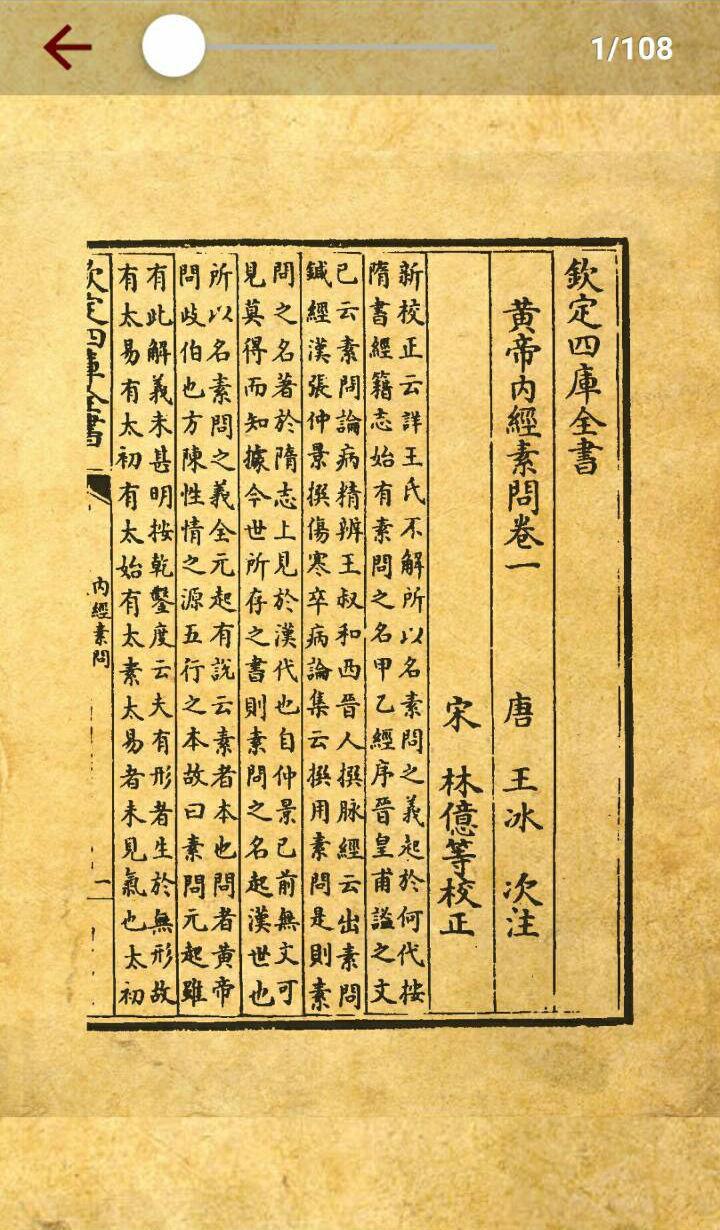 1/108
欽定四庫全書
黄帝内經素問卷一
唐 王冰 次注
宋 林億等校正
新校正云詳王氏不解所以名素問之義起於何代按
隋書經籍志始有素問之名甲乙經序晉皇甫謐之文
已云素問論病精辨王叔和西晉人撰脉經云出素問
鍼經漢張仲景撰傷寒卒病論集云撰用素問是則素
問之名著於隋志上見於漢代也自仲景已前無文可
見莫得而知據今世所存之書則素問之名起漢世也
所以名素問之義全元起有說云素者本也問者黄帝
問歧伯也方陳性情之源五行之本故曰素問元起雖
有此解義未甚明按乾鑿度云夫有形者生於無形故
有太易有太初有太始有太素太易者未見氣也太初
欽定四庫全書
内經素問
一